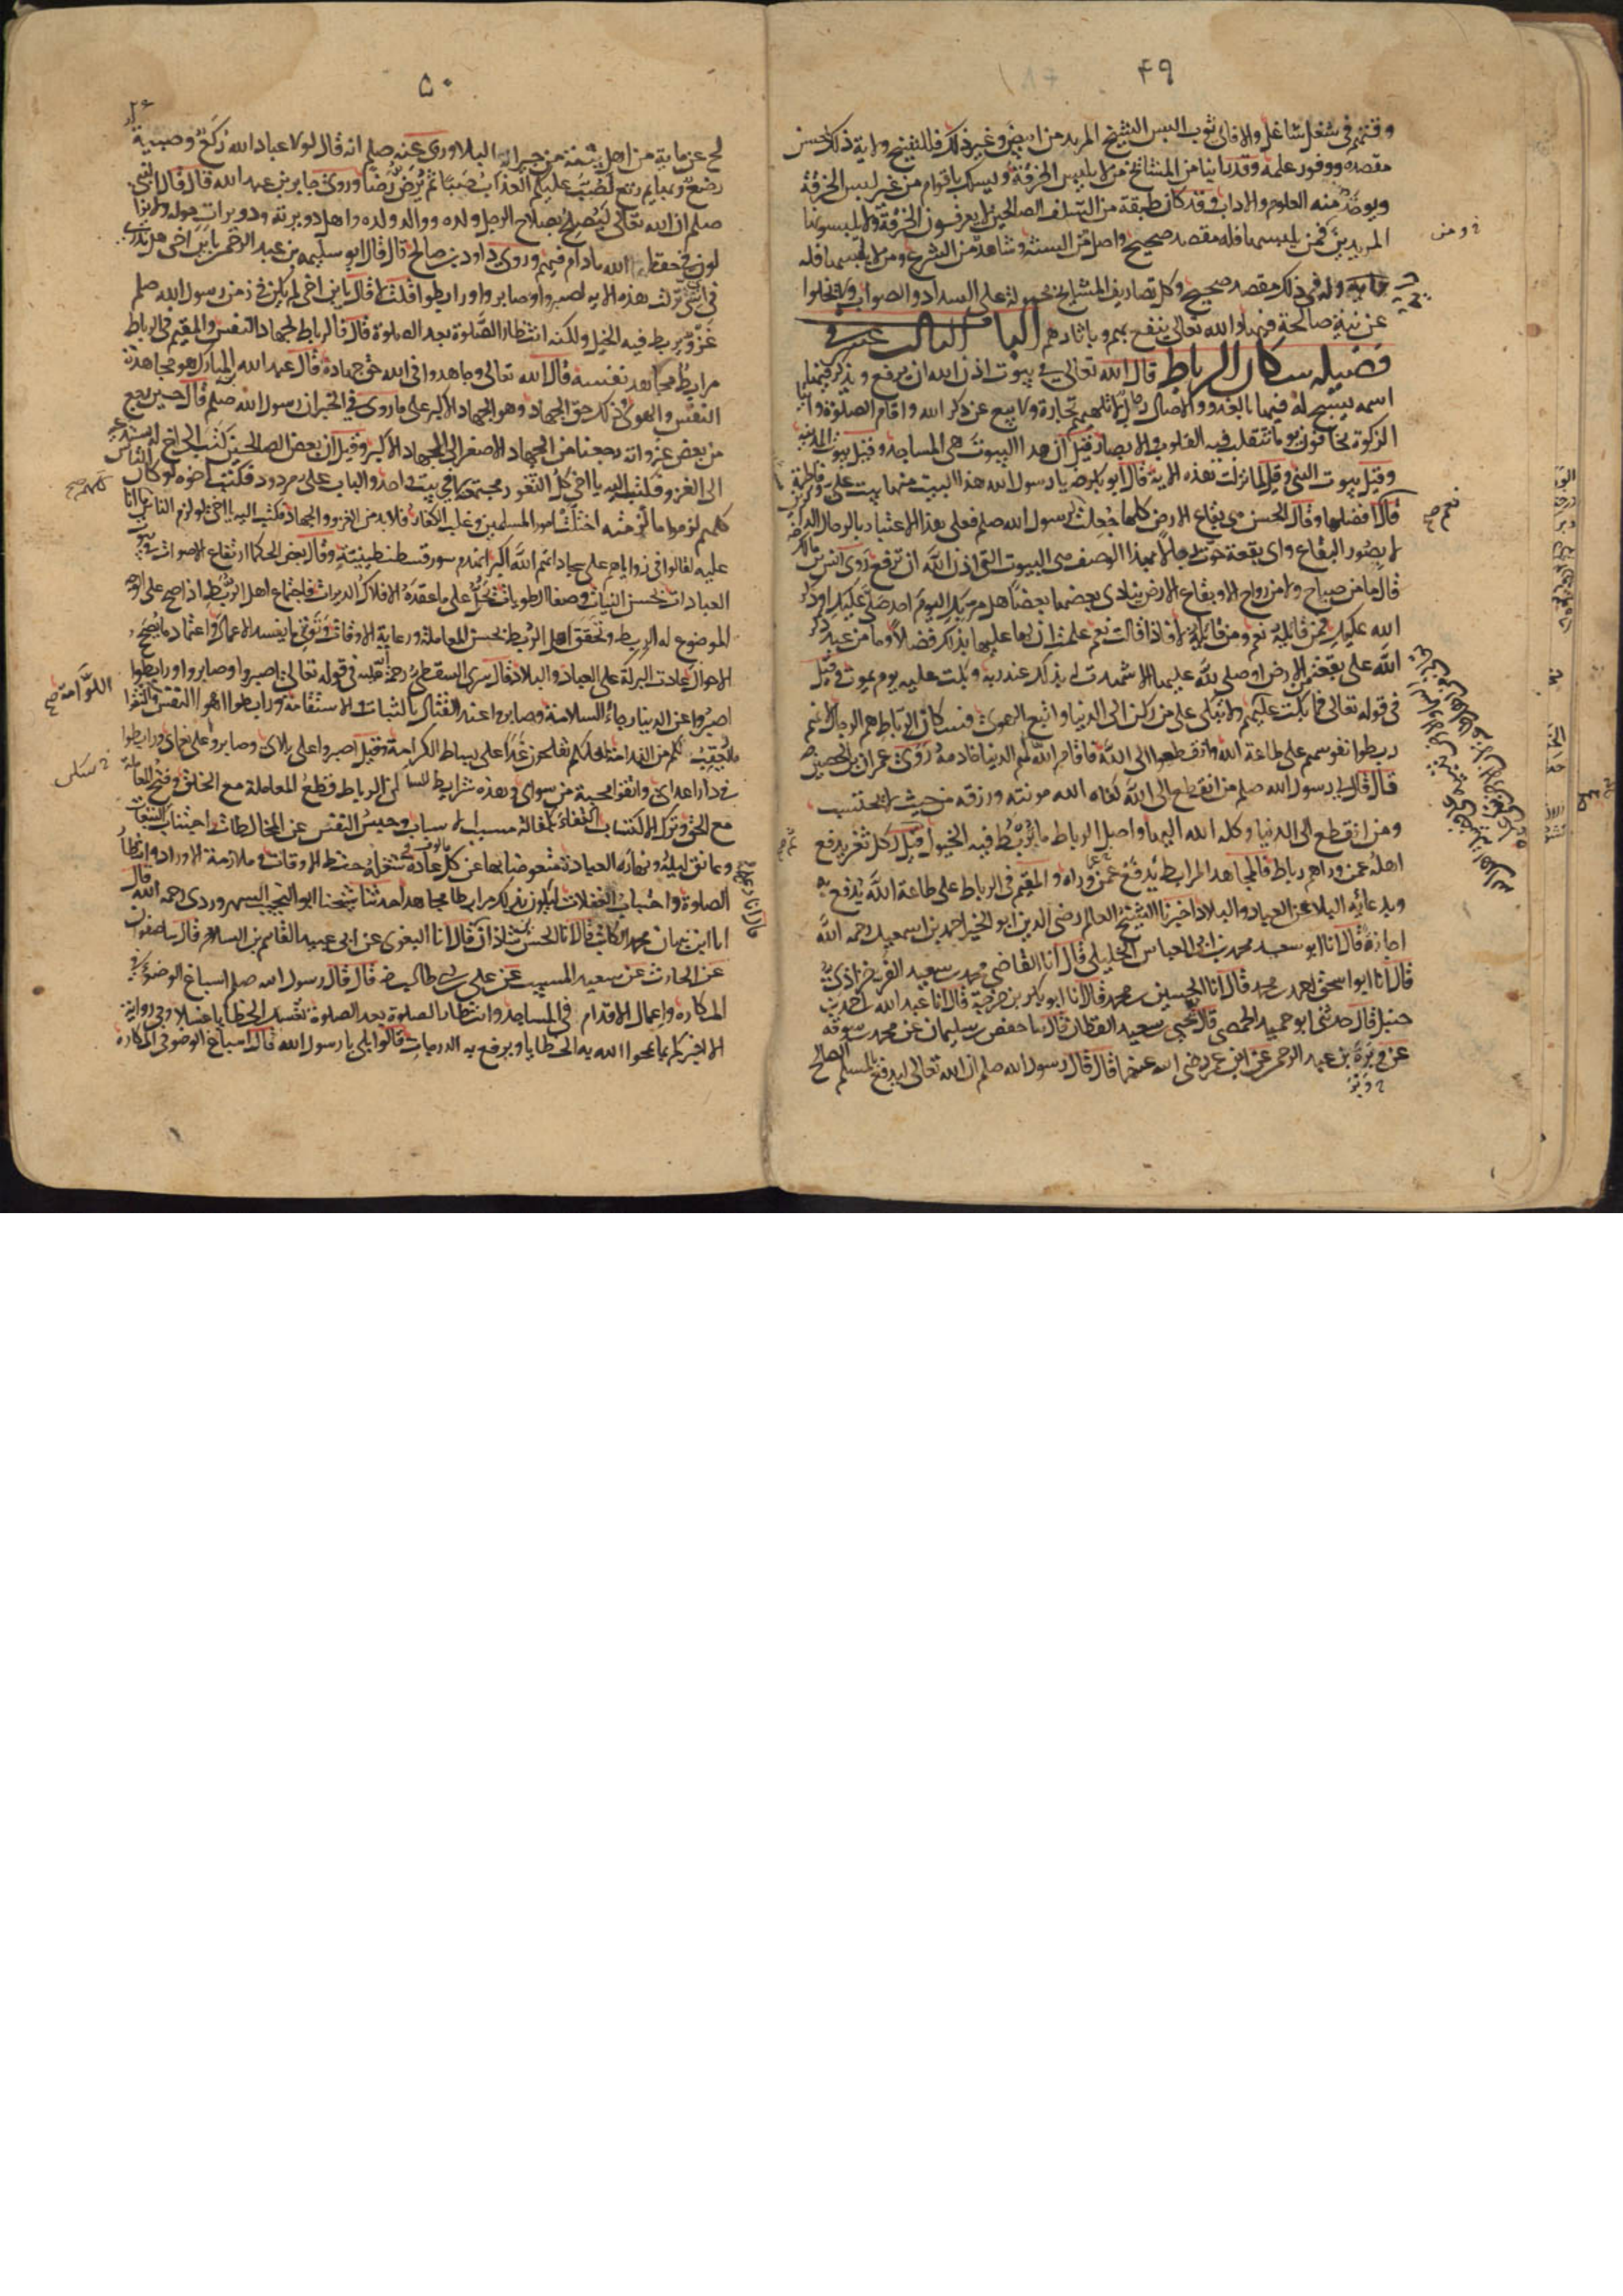 ۴۹
وقتهم فى شغل شاغل والا فاى ثوب البس الشيخ المريد من ابيض وغير ذلك فللشيخ ولاية ذلك بحسن
مقصده ووفور علمه وقد راينا من المشائخ من لا يلبس الخرقة ويسلك باقوام من غير لبس الخرقة
ويوخذ منه العلوم والاداب وقد كان طبقة من السلف الصالحين لا يعرفون الخرقة ولا يلبسونها
المريدين فمن يلبسها فله مقصد صحيح واصل من السنة وشاهد من الشرع ومن لا يلبسها فله
رايه وله فى ذلك مقصد صحيح وكل تصاريف المشايخ محمولة على السداد والصواب ولا تخلوا
عن نية صالحة فيه والله تعالى ينفع بهم وباثارهم الباب الثالث عشر فى
فضيلة سكان الرباط قال الله تعالى فى بيوت اذن الله ان ترفع ويذكر فيها
اسمه يسبح له فيها بالغدو والاصال رجال لا تلهيهم تجارة ولا بيع عن ذكر الله واقام الصلوة وايتا
الزكوة يخافون يوما تتقلب فيه القلوب والابصار قيل ان هذا البيوت هى المساجد وقيل بيوت المدينة
وقيل بيوت النبى وقيل لما نزلت هذه الاية قال ابو بكر رضه يا رسول الله هذا البيت منها بيت على وفاطمة
قال افضلها وقال الحسن هى بقاع الارض كلها جعلت لرسول الله صلم فعلى هذا الاعتبار بالرجال الذاكرين
لا بصور البقاع واى بقعة حوت رجالا بهذا الوصف هى البيوت التى اذن الله ان ترفع روى انس بن مالك
قال ما من صباح ولا من رواح الا وبقاع الارض ينادى بعضها بعضا هل مر بك اليوم احد صلى عليك او ذكر
الله عليك فمن قايلة نعم ومن قايلة لا فاذا قالت نعم علمت ان لها عليها بذلك فضلا وما من عبد ذكر
الله على بقعة من الارض او صلى لله عليها الا شهدت له بذلك عند ربه وبكت عليه يوم يموت وقيل
فى قوله تعالى فما بكت عليهم ولا تبكى على من ركن الى الدنيا واتبع الهوى فسكان الرباط هم الرجال لانهم
ربطوا نفوسهم على طاعة الله وانقطعوا الى الله فاقام الله لهم الدنيا خادمة روى عمران بن الحصين
قال قال رسول الله صلم من انقطع الى الله كفاه الله مونته ورزقه من حيث لا يحتسب
ومن انقطع الى الدنيا وكله الله اليها واصل الرباط ما يربط فيه الخيول ثم قيل لكل ثغر يدفع
اهله عمن وراهم رباط فالمجاهد المرابط يدفع عمن وراه والمقيم فى الرباط على طاعة الله يدفع به
وبدعائه البلا عن العباد والبلاد اخبرنا الشيخ العالم رضى الدين ابو الخير احمد بن اسمعيل رحمه الله
اجازة قال انا ابو سعيد محمد بن ابى العباس الخليلى قال انا القاضى محمد بن سعيد الفرخزاذى
قال انا ابو اسحق احمد بن محمد قال انا الحسين بن محمد قال انا ابو بكر بن خرجة قال انا عبد الله بن احمد بن
حنبل قال حدثنى ابو حميد الحمصى قال يحيى بن سعيد القطان قال ثنا حفص بن سليمان عن محمد بن سوقه
عن وبرة بن عبد الرحمن عن ابن عمر رضى الله عنهما قال قال رسول الله صلم ان الله تعالى ليدفع بالمسلم الصالح
۵۰
لح عن ماية من اهل بيته من جيرانه البلا وروى عنه صلم انه قال لولا عباد الله ركع وصبية
رضع وبهايم رتع لصب عليكم العذاب صبا ثم يرض رضا وروى جابر بن عبد الله قال قال النبى
صلم ان الله تعالى ليصلح بصلاح الرجل ولده وولد ولده واهل دويرته ودويرات حوله ولا يزا
لون فى حفظ الله ما دام فيهم وروى داود بن صالح قال قال ابو سلمه بن عبد الرحمن يا بن اخى هل تدرى
فى اى شى نزلت هذه الاية اصبروا وصابروا ورابطوا قلت لا قال يا بن اخى لم يكن فى زمن رسول الله صلم
غزو يربط فيه الخيل ولكنه انتظار الصلوة بعد الصلوة قال فالرباط لجهاد النفس والمقيم فى الرباط
مرابط مجاهد نفسه قال الله تعالى وجاهدوا فى الله حق جهاده قال عبد الله المبارك هو مجاهدة
النفس والهوى وذلك حق الجهاد وهو الجهاد الاكبر على ما روى فى الخبر ان رسول الله صلم قال حين رجع
من بعض غزواته رجعنا من الجهاد الاصغر الى الجهاد الاكبر وقيل ان بعض الصالحين كتب الى اخ له يستدعيه
الى الغزو فكتب اليه يا اخى كل الثغور مجتمعة لى فى بيت واحد والباب على مردود فكتب اخوه لو كان الناس
كلهم لزموا ما لزمته اختلت امور المسلمين وغلب الكفار فلا بد من الغزو والجهاد فكتب اليه يا اخى لو لزم الناس ما انا
عليه لقالوا فى زواياهم على سجاداتهم الله اكبر انهدم سور قسطنطينية وقال بعض الحكما ارتفاع الاصوات فى بيوت
العبادات بحسن النيات وصفا الطويات يحل ما عقدة الافلاك الدايرات فاجتماع اهل الربط اذا صح على الوجه
الموضوع له الربط وتحقق اهل الربط بحسن المعاملة ورعاية الاوقات وتوقى ما يفسد الاعمال واعتماد ما يصحح
الاحوال عادت البركة على العباد والبلاد قال سرى السقطى رحمة الله عليه فى قوله تعالى اصبروا وصابروا ورابطوا
اصبروا عن الدنيا رجاء السلامة وصابروا عند القتال بالثبات والاستقامة ورابطوا اهوا النفس اللوامة واتقوا
ما يعقب لكم من الندامة لعلكم تفلحون غدا على بساط الكرامة وقيل اصبروا على بلائى وصابروا على نعمائى ورابطوا
فى دار اعدائى واتقوا محبة من سوائى وهذه شرايط ساكن الرباط قطع المعاملة مع الخلق وفتح المعاملة
مع الحق وترك الاكتساب اكتفاء بكفالة مسبب الاسباب وحبس النفس عن المخالطات واجتناب التبعات
وعانق ليله ونهاره العبادة متعوضا بها عن كل عادة شغله حفظ الاوقات وملازمة الاوراد وانتظار
الصلوة واجتناب الغفلات ليكون بذلك مرابطا مجاهدا حدثنا شيخنا ابو النجيب السهروردى رحمه الله قال
انا ابن نبهان محمد الكاتب قال انا الحسن بن شاذان قال انا البغوى عن ابى عبيد القاسم بن السلام قال ثنا صفوان
عن الحارث عن سعيد المسيب عن على بن ابى طالب رض قال قال رسول الله صلم اسباغ الوضوء فى
المكاره واعمال الاقدام فى المساجد وانتظار الصلوة بعد الصلوة تغسل الخطايا غسلا وفى رواية
الا اخبركم بما يمحوا الله به الخطايا ويرفع به الدرجات قالوا بلى يا رسول الله قال اسباغ الوضو فى المكاره